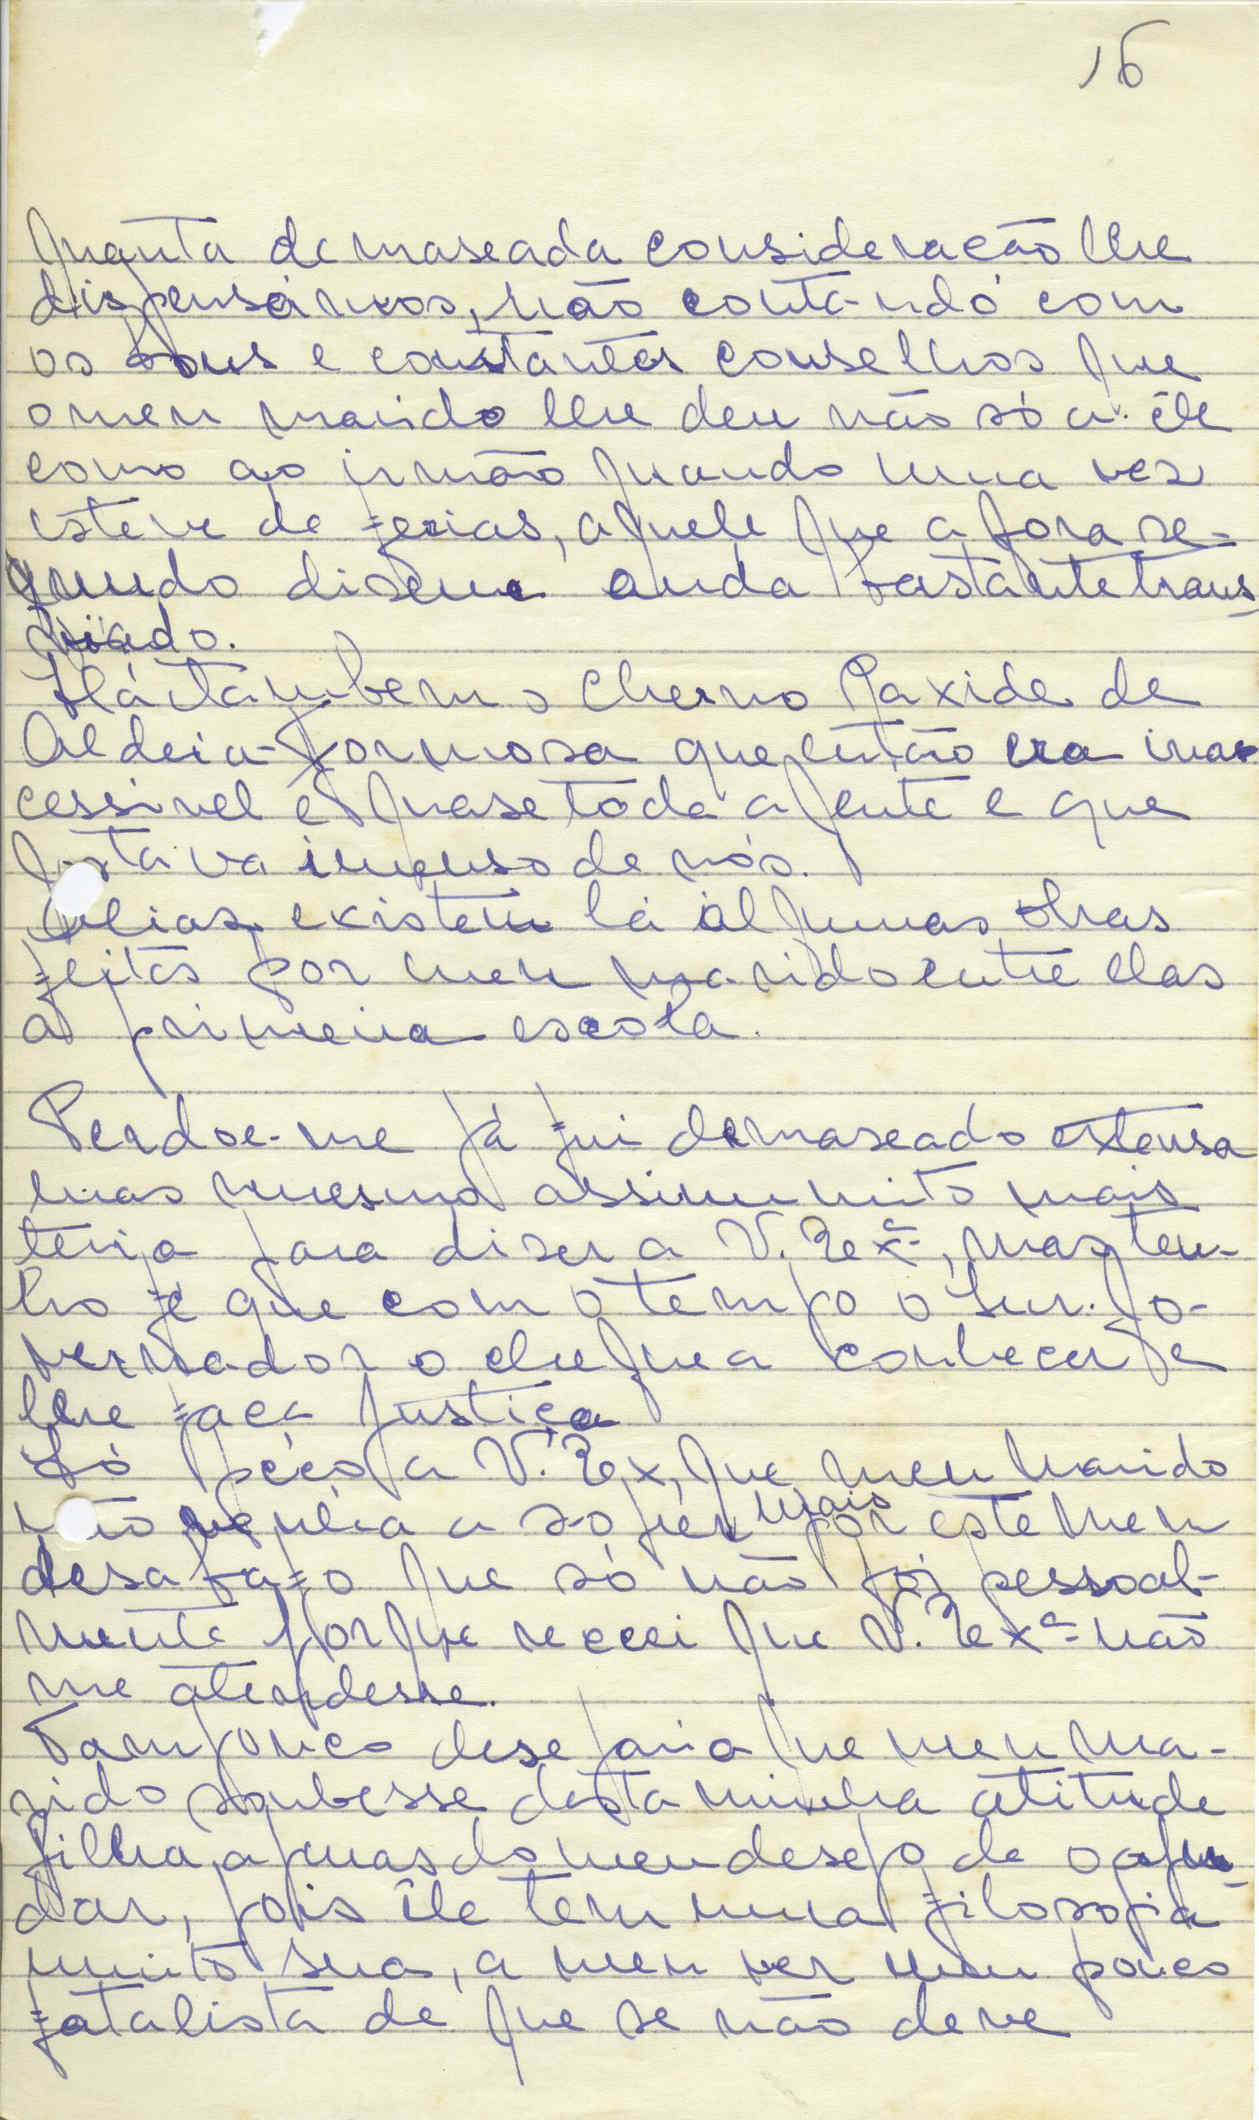 16
quanta demaseada consideracão lhe
dispensámos, não contando com
os bons e constantes conselhos que
o meu marido lhe deu não só a êle
como ao irmão quando uma vez
esteve de ferias, aquele que agora se-
gundo disem anda bastante trans
viado.
Há tambem o Cherno Raxide de
Aldeia-Formosa que então era inas
cessivel e quase toda a gente e que
gostava imenso de nós.
Alias existem lá algumas obras
feitas por meu marido entre elas
a primeira escola.
Perdoe-me já fui demaseado extensa
mas mesmo assim muito mais
teria para diser a V. Exª, mas ten-
ho fé que com o tempo o Snr. Go-
vernador o chegue a conhecer e
lhe faca justiça
Só péco a V. Ex, que meu marido
não venha a sofrer mais por este meu
desabafo que só não foi pessoal-
mente porque receei que V. Exª não
me atendesse.
Tampouco desejaria que meu ma-
rido soubesse desta minha atitude
filha apenas do meu desejo de o aju-
dar, pois êle tem uma filosofia
muito sua, a meu ver um pouco
fatalista de que se não deve